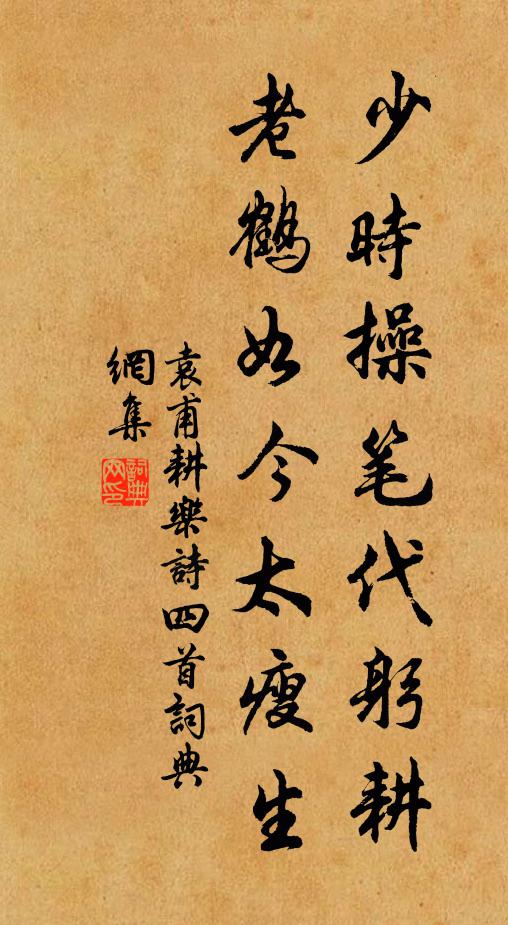 少時操笔代躬耕
老鶴如今太瘦生
袁甫耕樂詩四首詞典
網集
詞典
网印